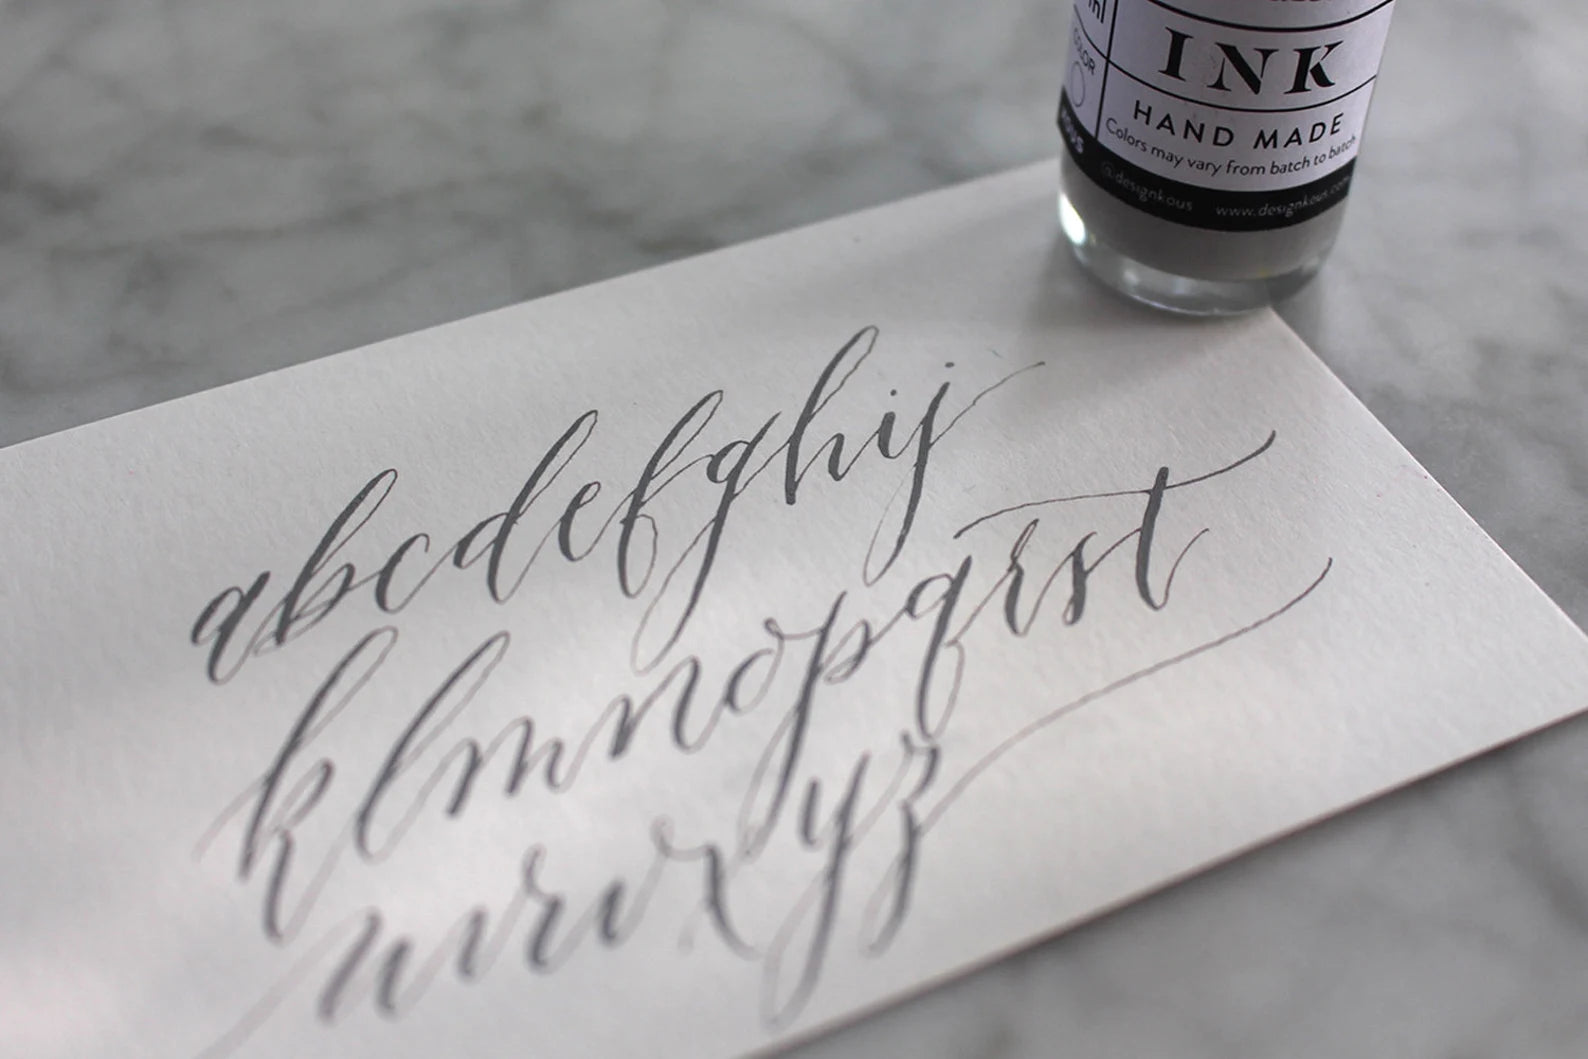 ml
COLOR
INK
HAND MADE
Colors may vary from batch to batch
@designkous www.designkous.com
abcdefghij
klmnopqrst
uvwxyz